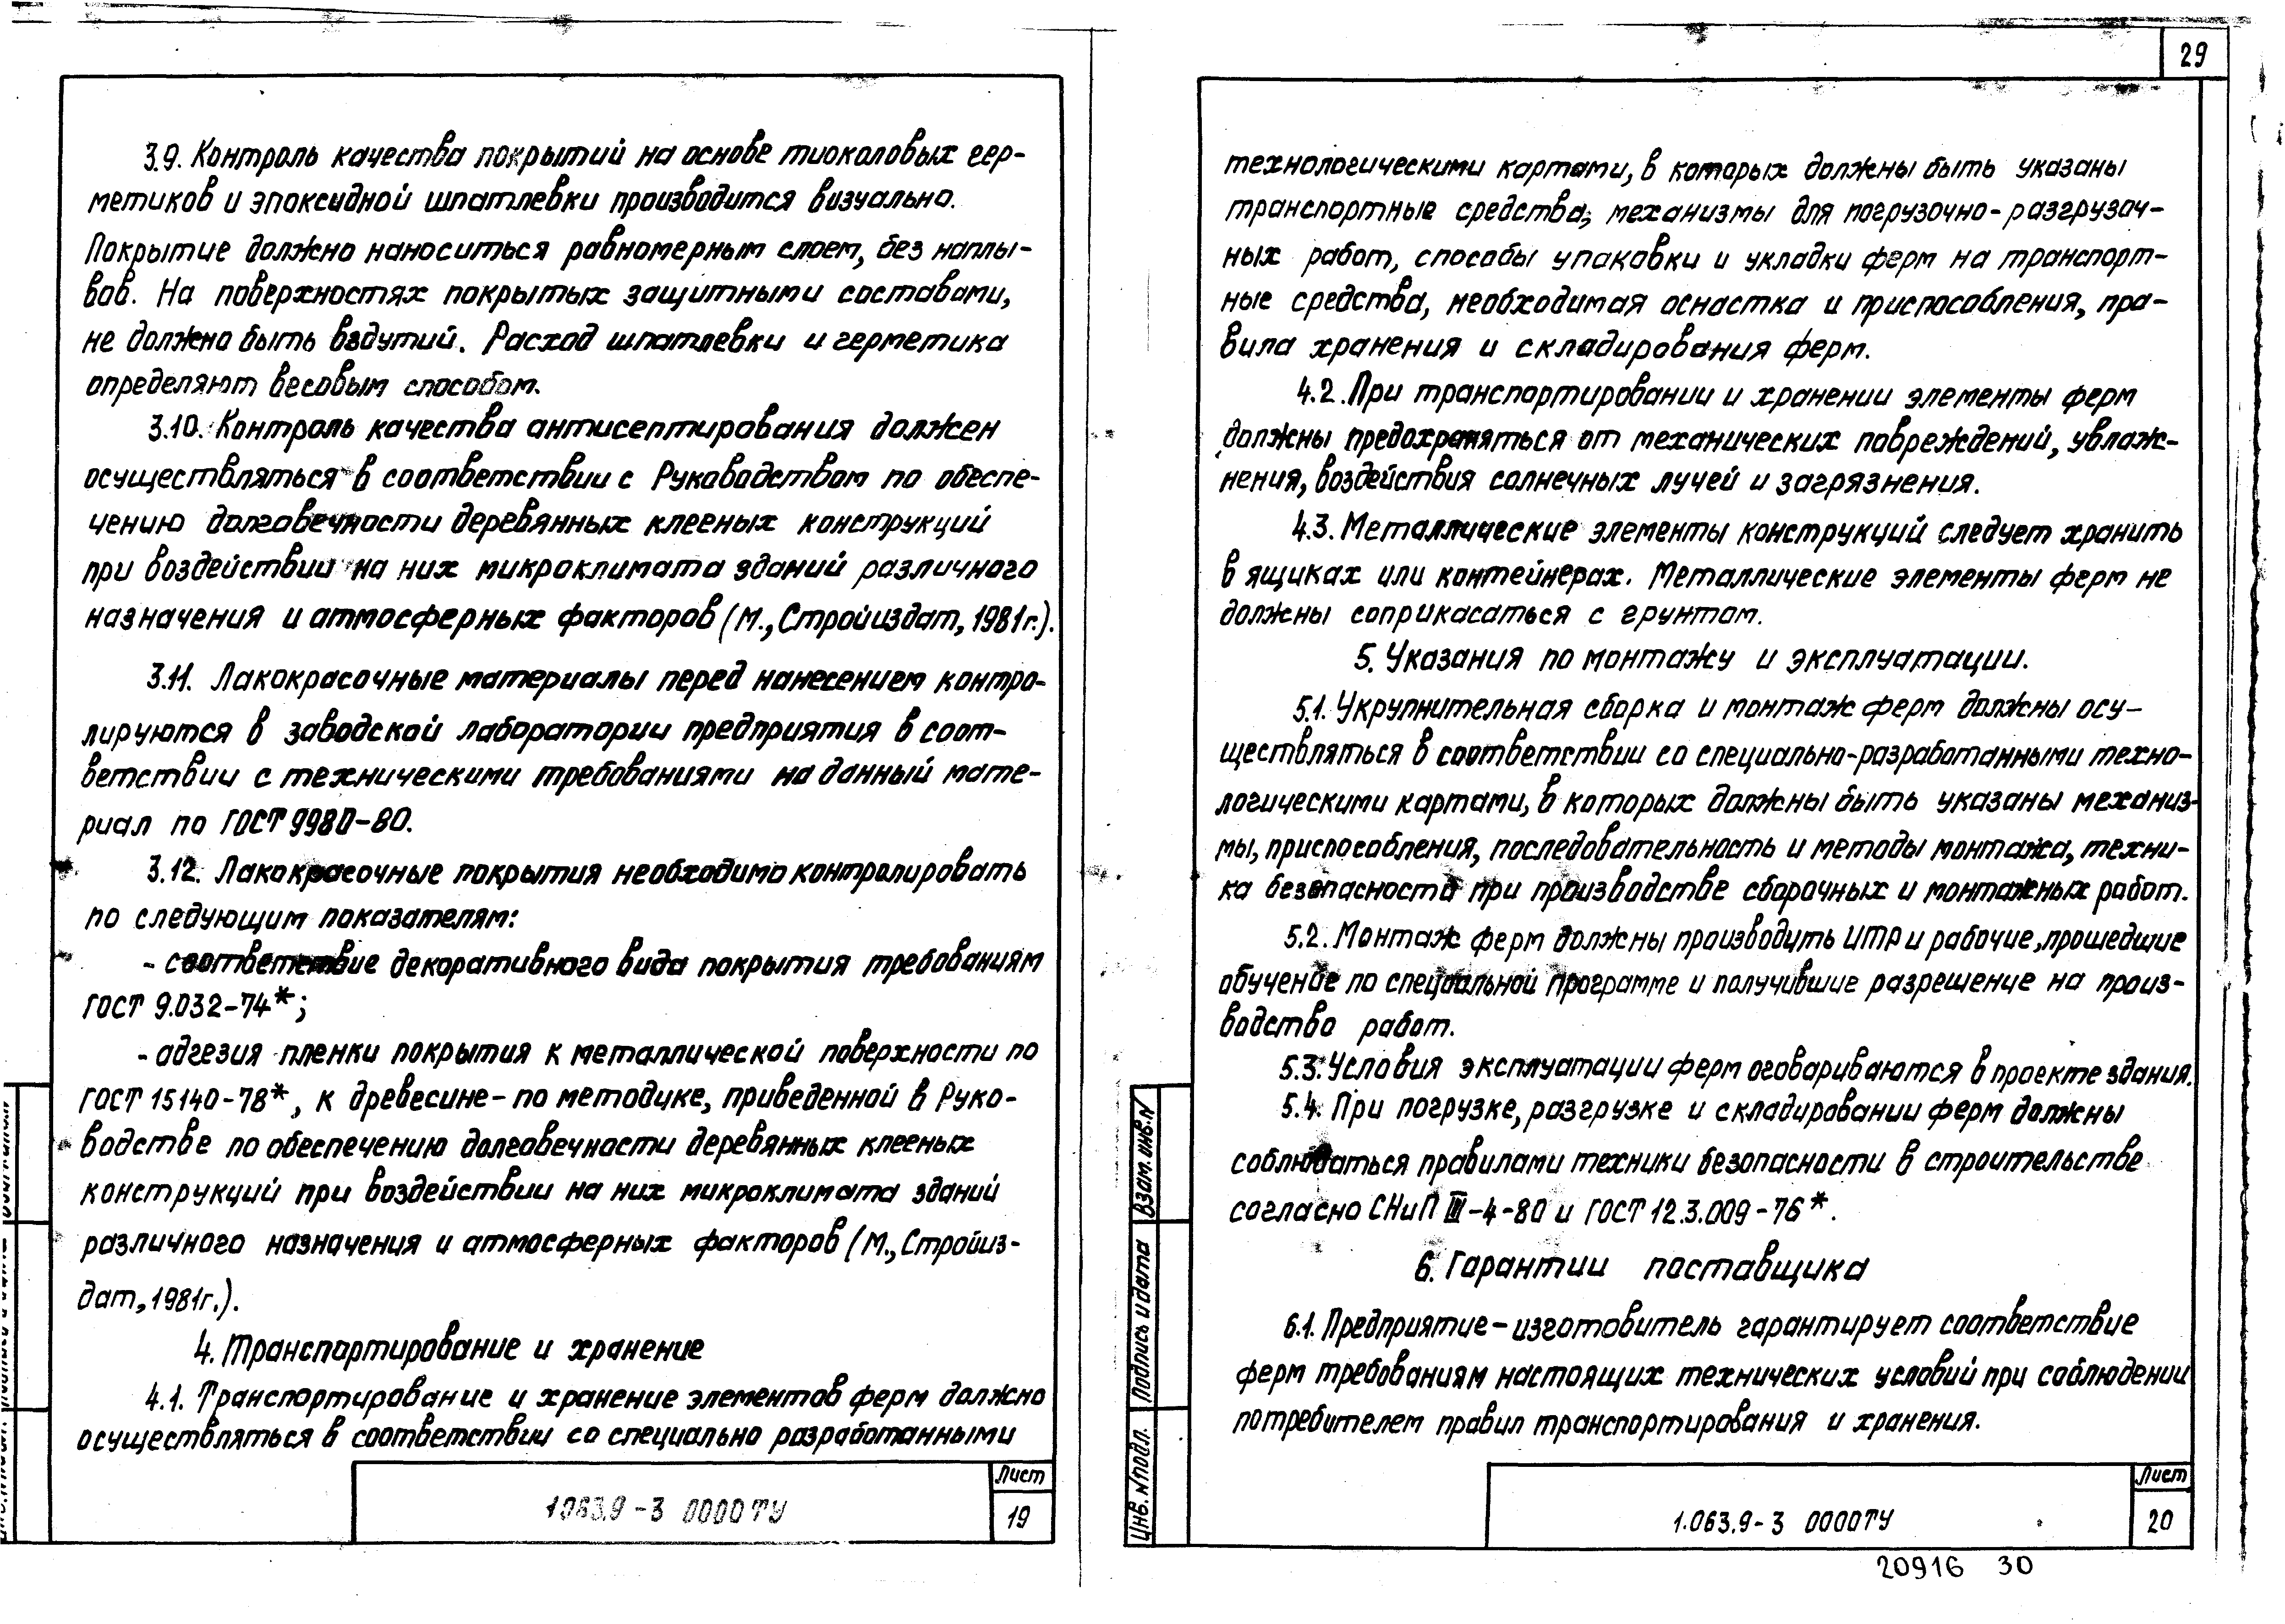 29
3.9. Контроль качества покрытий на основе тиоколовых гер-
метиков и эпоксидной шпатлевки производится визуально.
Покрытие должно наноситься равномерным слоем, без наплы-
вов. На поверхностях покрытых защитными составами,
не должно быть вздутий. Расход шпатлевки и герметика
определяют весовым способом.
3.10. Контроль качества антисептирования должен
осуществляться в соответствии с Руководством по обеспе-
чению долговечности деревянных клееных конструкций
при воздействии на них микроклимата зданий различного
назначения и атмосферных факторов (М., Стройиздат, 1981г.).
3.11. Лакокрасочные материалы перед нанесением контро-
лируются в заводской лаборатории предприятия в соот-
ветствии с техническими требованиями на данный мате-
риал по ГОСТ 9980-80.
3.12. Лакокрасочные покрытия необходимо контролировать
по следующим показателям:
- соответствие декоративного вида покрытия требованиям
ГОСТ 9.032-74*;
- адгезия пленки покрытия к металлической поверхности по
ГОСТ 15140-78*, к древесине - по методике, приведенной в Руко-
водстве по обеспечению долговечности деревянных клееных
конструкций при воздействии на них микроклимата зданий
различного назначения и атмосферных факторов (М., Стройиз-
дат, 1981г.).
4. Транспортирование и хранение
4.1. Транспортирование и хранение элементов ферм должно
осуществляться в соответствии со специально разработанными
1.063.9-3 0000ТУ
Лист
19
технологическими картами, в которых должны быть указаны
транспортные средства, механизмы для погрузочно-разгрузоч-
ных работ, способы упаковки и укладки ферм на транспорт-
ные средства, необходимая оснастка и приспособления, пра-
вила хранения и складирования ферм.
4.2. При транспортировании и хранении элементы ферм
должны предохраняться от механических повреждений, увлаж-
нения, воздействия солнечных лучей и загрязнения.
4.3. Металлические элементы конструкций следует хранить
в ящиках или контейнерах. Металлические элементы ферм не
должны соприкасаться с грунтом.
5. Указания по монтажу и эксплуатации.
5.1. Укрупнительная сборка и монтаж ферм должны осу-
ществляться в соответствии со специально-разработанными техно-
логическими картами, в которых должны быть указаны механиз-
мы, приспособления, последовательность и методы монтажа, техни-
ка безопасности при производстве сборочных и монтажных работ.
5.2. Монтаж ферм должны производить ИТР и рабочие, прошедшие
обучение по специальной программе и получившие разрешение на произ-
водство работ.
5.3. Условия эксплуатации ферм оговариваются в проекте здания.
5.4. При погрузке, разгрузке и складировании ферм должны
соблюдаться правилами техники безопасности в строительстве
согласно СНиП III-4-80 и ГОСТ 12.3.009-76*.
6. Гарантии поставщика
6.1. Предприятие-изготовитель гарантирует соответствие
ферм требованиям настоящих технических условий при соблюдении
потребителем правил транспортирования и хранения.
Взам. инв.N
Подпись и дата
Инв. N подл.
1.063.9-3 0000ТУ
Лист
20
20916 30